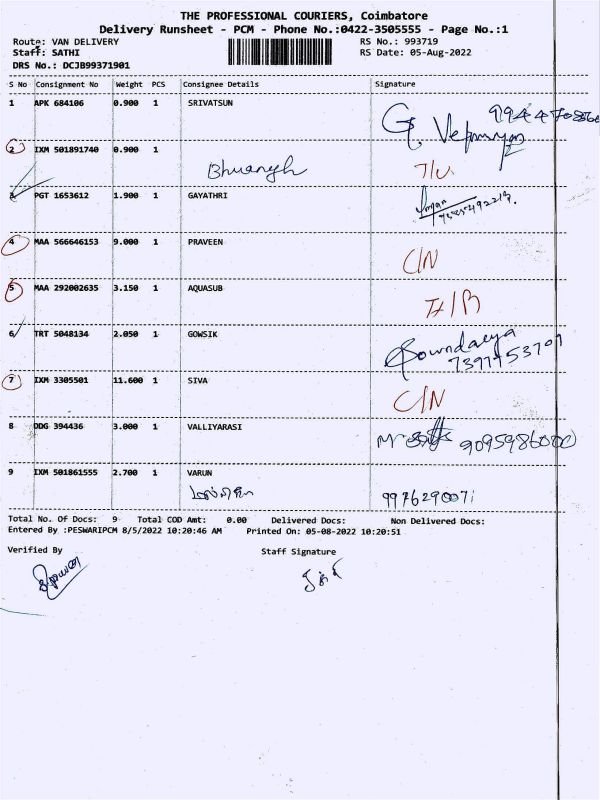 THE PROFESSIONAL COURIERS, Coimbatore
Delivery Runsheet - PCM - Phone No.:0422-3505555 - Page No.:1
Route: VAN DELIVERY RS No.: 993719
Staff: SATHI RS Date: 05-Aug-2022
DRS No.: DCJB99371901
S No Consignment No Weight PCS Consignee Details Signature
1 APK 684106 0.900 1 SRIVATSUN
2 IXM 501891740 0.900 1
T/U
3 PGT 1653612 1.900 1 GAYATHRI
4 MAA 566646153 9.000 1 PRAVEEN
C/N
5 MAA 292002635 3.150 1 AQUASUB
6 TRT 5048134 2.050 1 GOWSIK
7 IXM 3305501 11.600 1 SIVA
C/N
8 DDG 394436 3.000 1 VALLIYARASI
9095986000
9 IXM 501861555 2.700 1 VARUN
9976290071
Total No. Of Docs: 9 Total COD Amt: 0.00 Delivered Docs: Non Delivered Docs:
Entered By :PESWARIPCM 8/5/2022 10:20:46 AM Printed On: 05-08-2022 10:20:51
Verified By Staff Signature